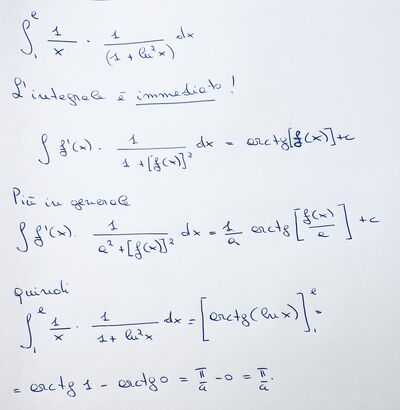 ∫₁ᵉ 1/x · 1/(1 + ln²x) dx
L'integrale è immediato!
∫ f'(x) · 1/(1 + [f(x)]²) dx = arctg[f(x)] + c
Più in generale
∫ f'(x) · 1/(a² + [f(x)]²) dx = 1/a arctg [f(x)/a] + c
quindi
∫₁ᵉ 1/x · 1/(1 + ln²x) dx = [arctg(ln x)]₁ᵉ =
= arctg 1 - arctg 0 = π/4 - 0 = π/4.